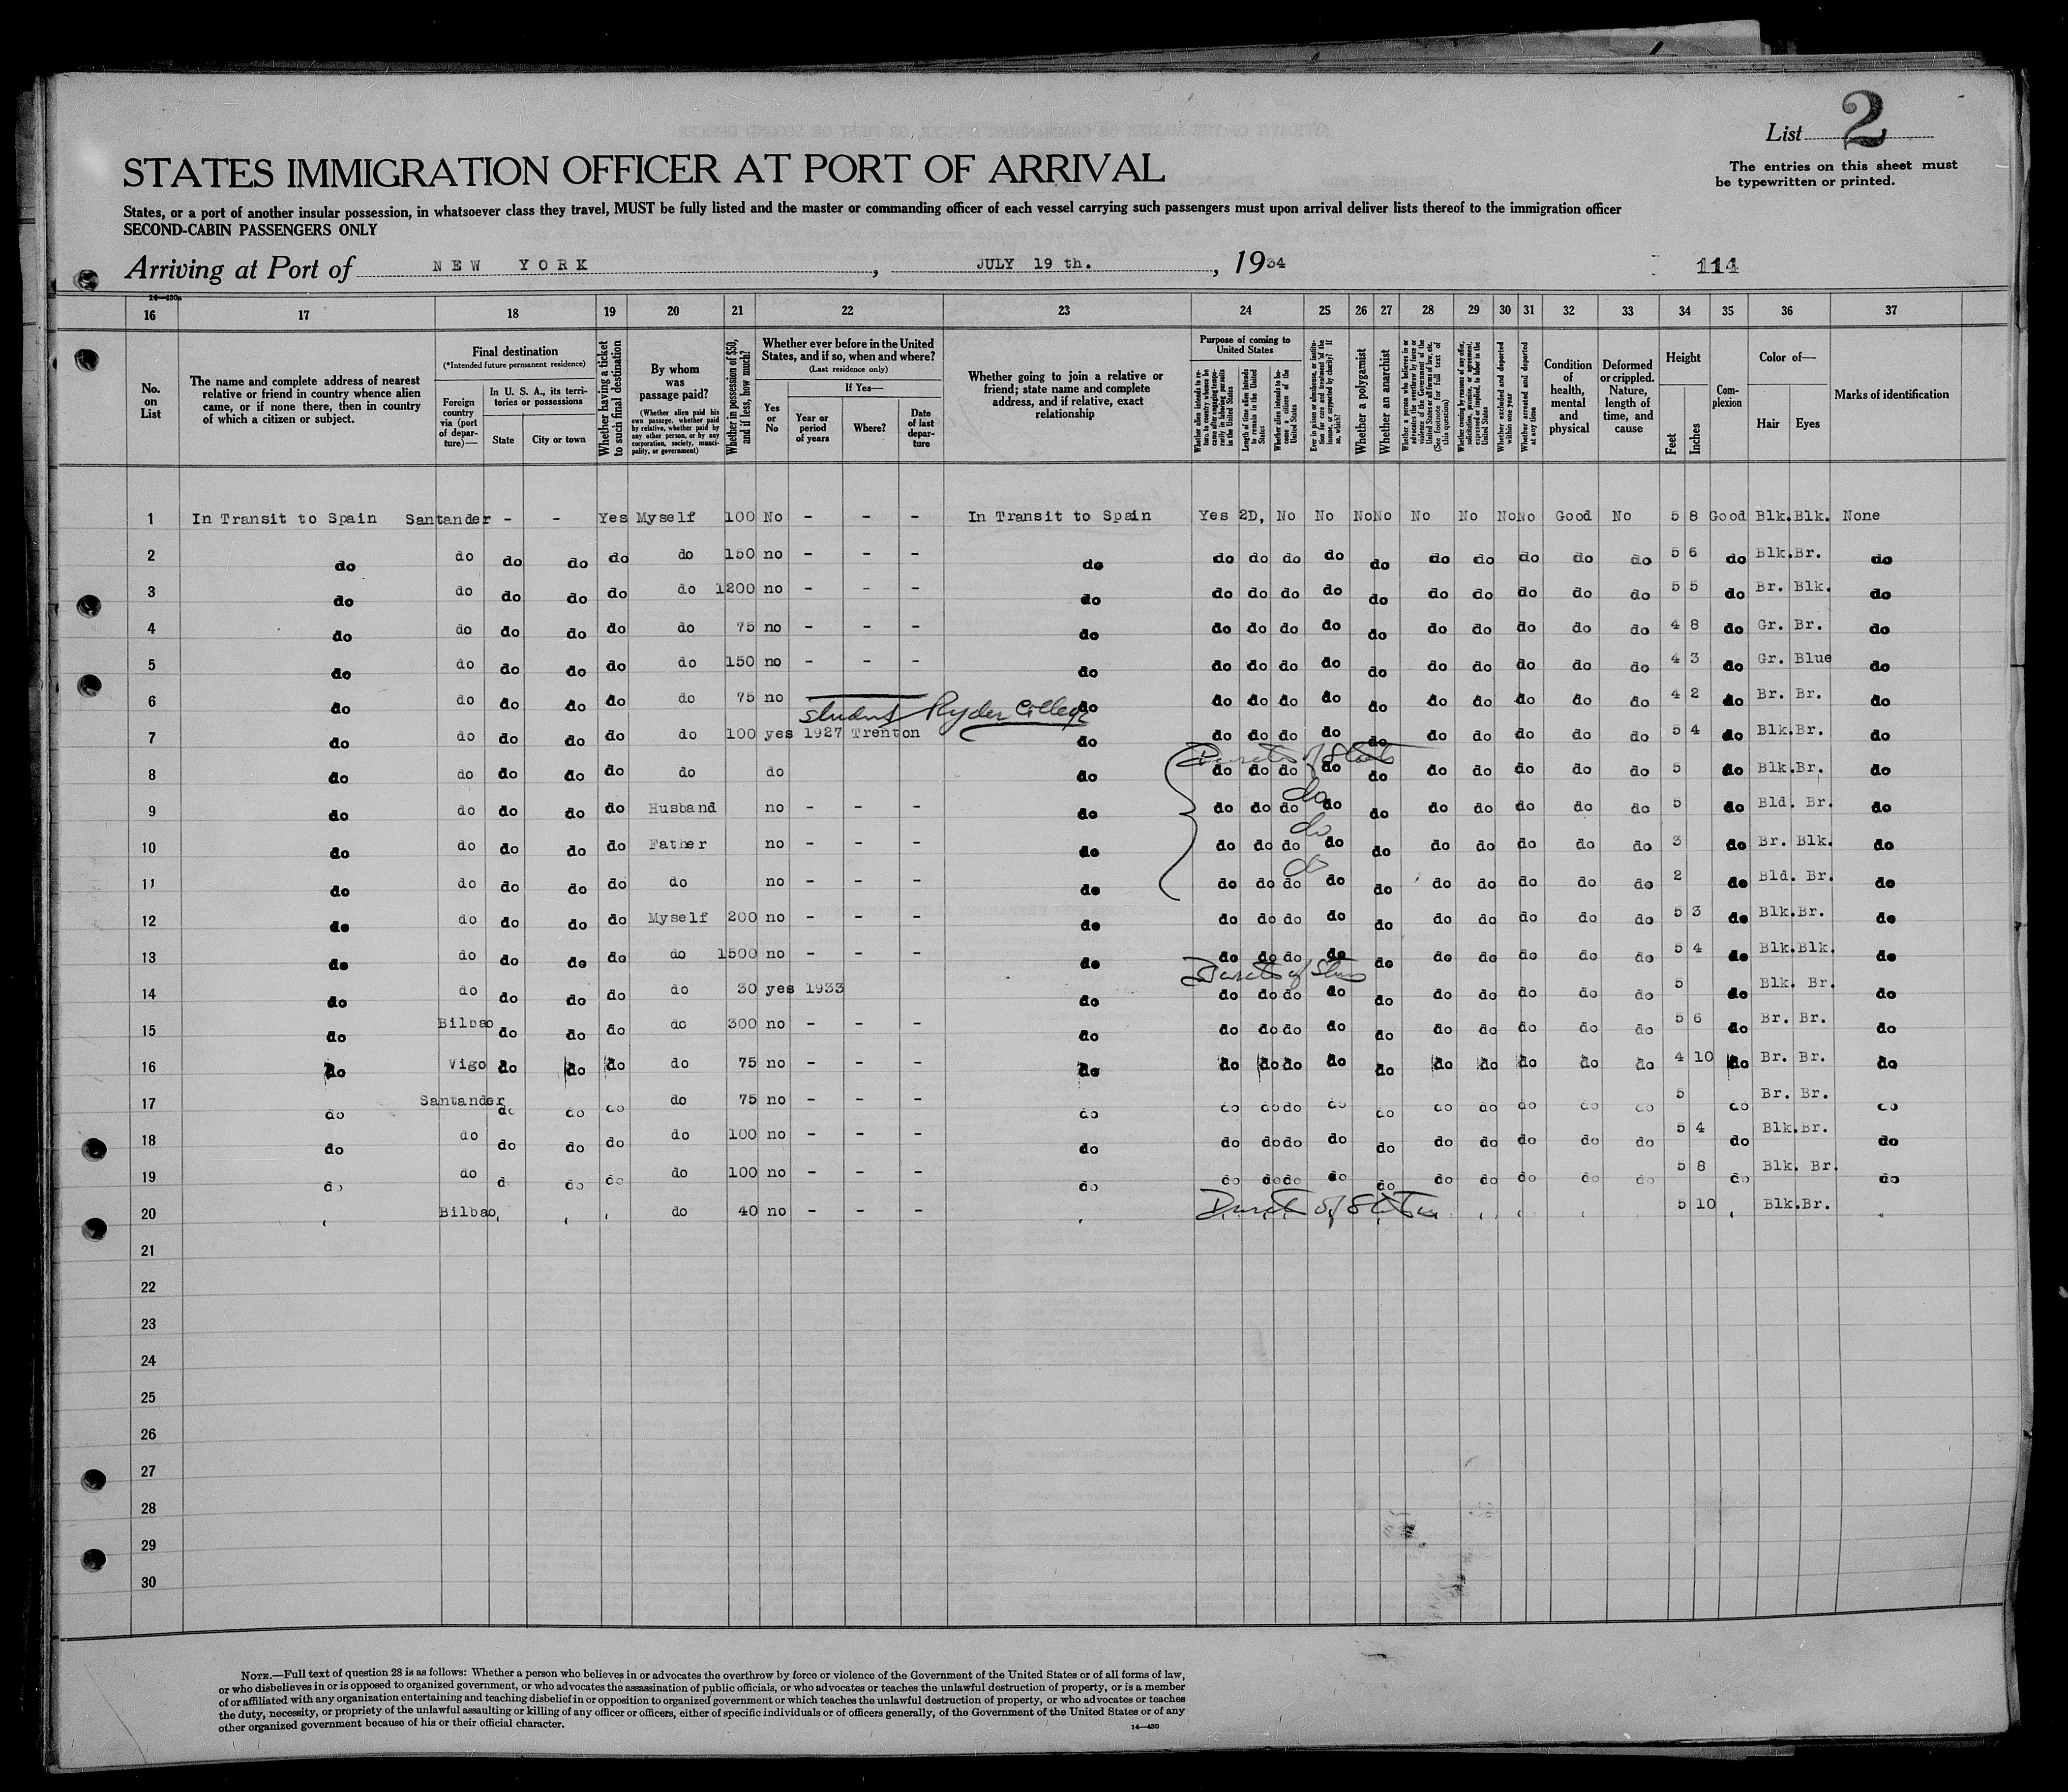 List 2
The entries on this sheet must
be typewritten or printed.
STATES IMMIGRATION OFFICER AT PORT OF ARRIVAL
States, or a port of another insular possession, in whatsoever class they travel, MUST be fully listed and the master or commanding officer of each vessel carrying such passengers must upon arrival deliver lists thereof to the immigration officer
SECOND-CABIN PASSENGERS ONLY
Arriving at Port of NEW YORK, JULY 19 th., 1934 114
14—430a
16 17 18 19 20 21 22 23 24 25 26 27 28 29 30 31 32 33 34 35 36 37
No. on List
The name and complete address of nearest relative or friend in country whence alien came, or if none there, then in country of which a citizen or subject.
Final destination
(*Intended future permanent residence)
Foreign country via (port of departure)—
In U. S. A., its territories or possessions
State City or town
Whether having a ticket to such final destination
By whom was passage paid?
(Whether alien paid his own passage, whether paid by relative, whether paid by any other person, or by any corporation, society, municipality, or government)
Whether in possession of $50, and if less, how much?
Whether ever before in the United States, and if so, when and where?
(Last residence only)
Yes or No
If Yes—
Year or period of years
Where?
Date of last departure
Whether going to join a relative or friend; state name and complete address, and if relative, exact relationship
Purpose of coming to United States
Whether alien intends to return to country whence he came after engaging temporarily in laboring pursuits in the United States
Length of time alien intends to remain in the United States
Whether alien intends to become a citizen of the United States
Ever in prison or almshouse, or institution for care and treatment of the insane, or supported by charity? If so, which?
Whether a polygamist
Whether an anarchist
Whether a person who believes in or advocates the overthrow by force or violence of the Government of the United States or all forms of law, etc. (See footnote for full text of this question)
Whether coming by reason of any offer, solicitation, promise, or agreement, expressed or implied, to labor in the United States
Whether excluded and deported within one year
Whether arrested and deported at any time
Condition of health, mental and physical
Deformed or crippled. Nature, length of time, and cause
Height
Feet Inches
Complexion
Color of—
Hair Eyes
Marks of identification
1 In Transit to Spain Santander - - Yes Myself 100 No - - - In Transit to Spain Yes 2D, No No No No No No No No Good No 5 8 Good Blk. Blk. None
2 do do do do do do 150 no - - - do do do do do do do do do do do 5 6 do Blk. Br. do
3 do do do do do do 1200 no - - - do do do do do do do do do do do 5 5 do Br. Blk. do
4 do do do do do do 75 no - - - do do do do do do do do do do do 4 8 do Gr. Br. do
5 do do do do do do 150 no - - - do do do do do do do do do do do 4 3 do Gr. Blue do
6 do do do do do do 75 no do do do do do do do do do do do 4 2 do Br. Br. do
student Ryder College
7 do do do do do do 100 yes 1927 Trenton do do do do do do do do do do do 5 4 do Blk. Br. do
8 do do do do do do do do do do do do do do do do do do do 5 do Blk. Br. do
do
9 do do do do do Husband no - - - do do do do do do do do do do do 5 do Bld. Br. do
do
10 do do do do do Father no - - - do do do do do do do do do do do 3 do Br. Blk. do
do
11 do do do do do do no - - - do do do do do do do do do do do 2 do Bld. Br. do
12 do do do do do Myself 200 no - - - do do do do do do do do do do do 5 3 do Blk. Br. do
13 do do do do do do 1500 no - - - do do do do do do do do do do do 5 4 do Blk. Blk. do
14 do do do do do do 30 yes 1933 do do do do do do do do do do do 5 do Blk. Br. do
15 do Bilbao do do do do 300 no - - - do do do do do do do do do do do 5 6 do Br. Br. do
16 do Vigo do do do do 75 no - - - do do do do do do do do do do do 4 10 do Br. Br. do
17 do Santander do do do do 75 no - - - do do do do do do do do do do do 5 do Br. Br. do
18 do do do do do do 100 no - - - do do do do do do do do do do do 5 4 do Blk. Br. do
19 do do do do do do 100 no - - - do do do do do do do do do do do 5 8 do Blk. Br. do
20 Bilbao do 40 no - - - 5 10 Blk. Br.
21
22
23
24
25
26
27
28
29
30
NOTE.—Full text of question 28 is as follows: Whether a person who believes in or advocates the overthrow by force or violence of the Government of the United States or of all forms of law,
or who disbelieves in or is opposed to organized government, or who advocates the assassination of public officials, or who advocates or teaches the unlawful destruction of property, or is a member
of or affiliated with any organization entertaining and teaching disbelief in or opposition to organized government or which teaches the unlawful destruction of property, or who advocates or teaches
the duty, necessity, or propriety of the unlawful assaulting or killing of any officer or officers, either of specific individuals or of officers generally, of the Government of the United States or of any
other organized government because of his or their official character.
14—430